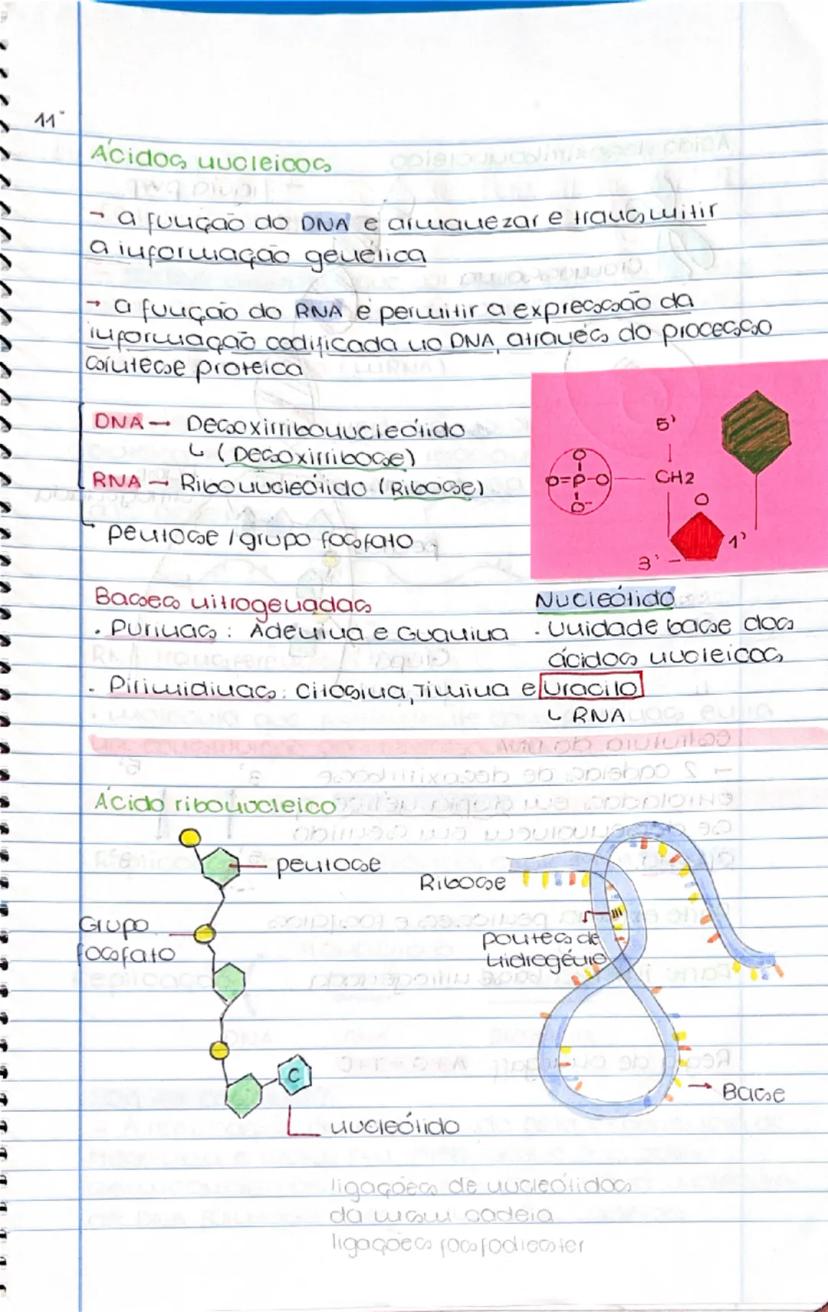 11º
Ácidos nucleicos
→ a função do DNA é armanezar e transmitir
a informação genética
→ a função do RNA é permitir a expressão da
informação codificada no DNA, através do processo
síntese proteica
DNA → Desoxirribonucleótido
↳ (Desoxirribose)
RNA → Ribonucleótido (Ribose)
↳ pentose / grupo fosfato
5'
O
O=P-O
O-
CH2
O
1'
3'
Bases nitrogenadas
. Purinas : Adenina e Guanina
. Pirimidinas : citosina, Timina e Uracilo
↳ RNA
Nucleótido
. Unidade base dos
ácidos nucleicos
Ácido ribonucleico
pentose
Grupo
fosfato
C
nucleótido
Ribose
pontes de
hidrogénio
→ Base
ligações de nucleótidos
da mesm cadeia
ligações fosfodiester